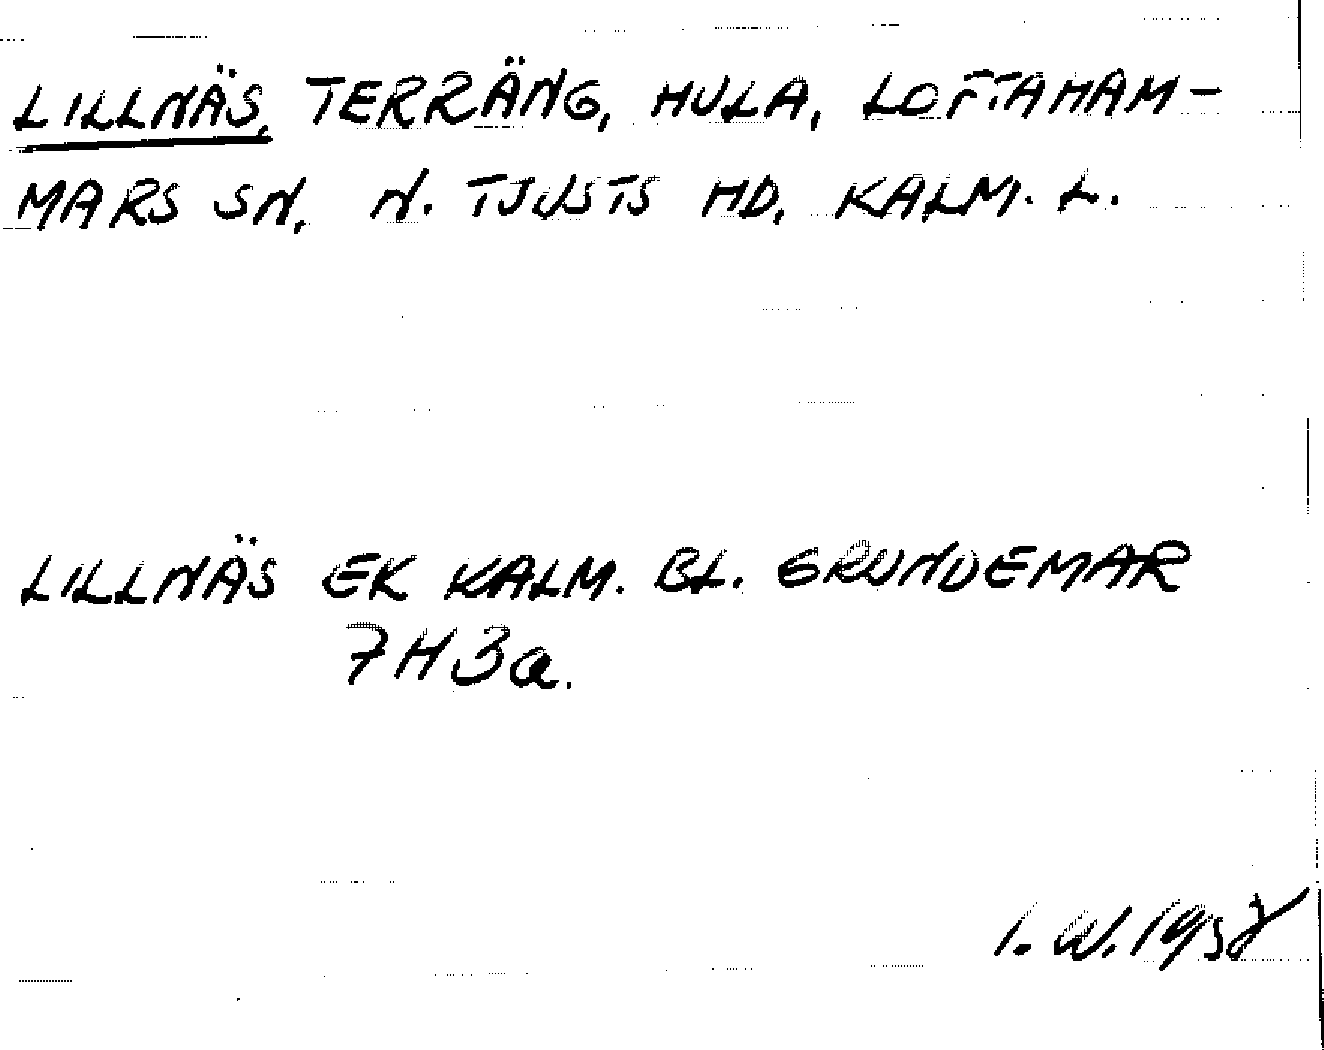 LILLNÄS, TERRÄNG, HULA, LOFTAHAM-
MARS SN, N. TJUSTS HD, KALM. L.
LILLNÄS EK KALM. BL. GRUNDEMAR
7H3a.
I.W.